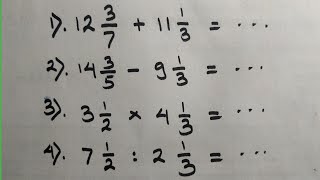 1). 12 3/7 + 11 1/3 = ...
2). 14 3/5 - 9 1/3 = ...
3). 3 1/2 × 4 1/3 = ...
4). 7 1/2 : 2 1/3 = ...